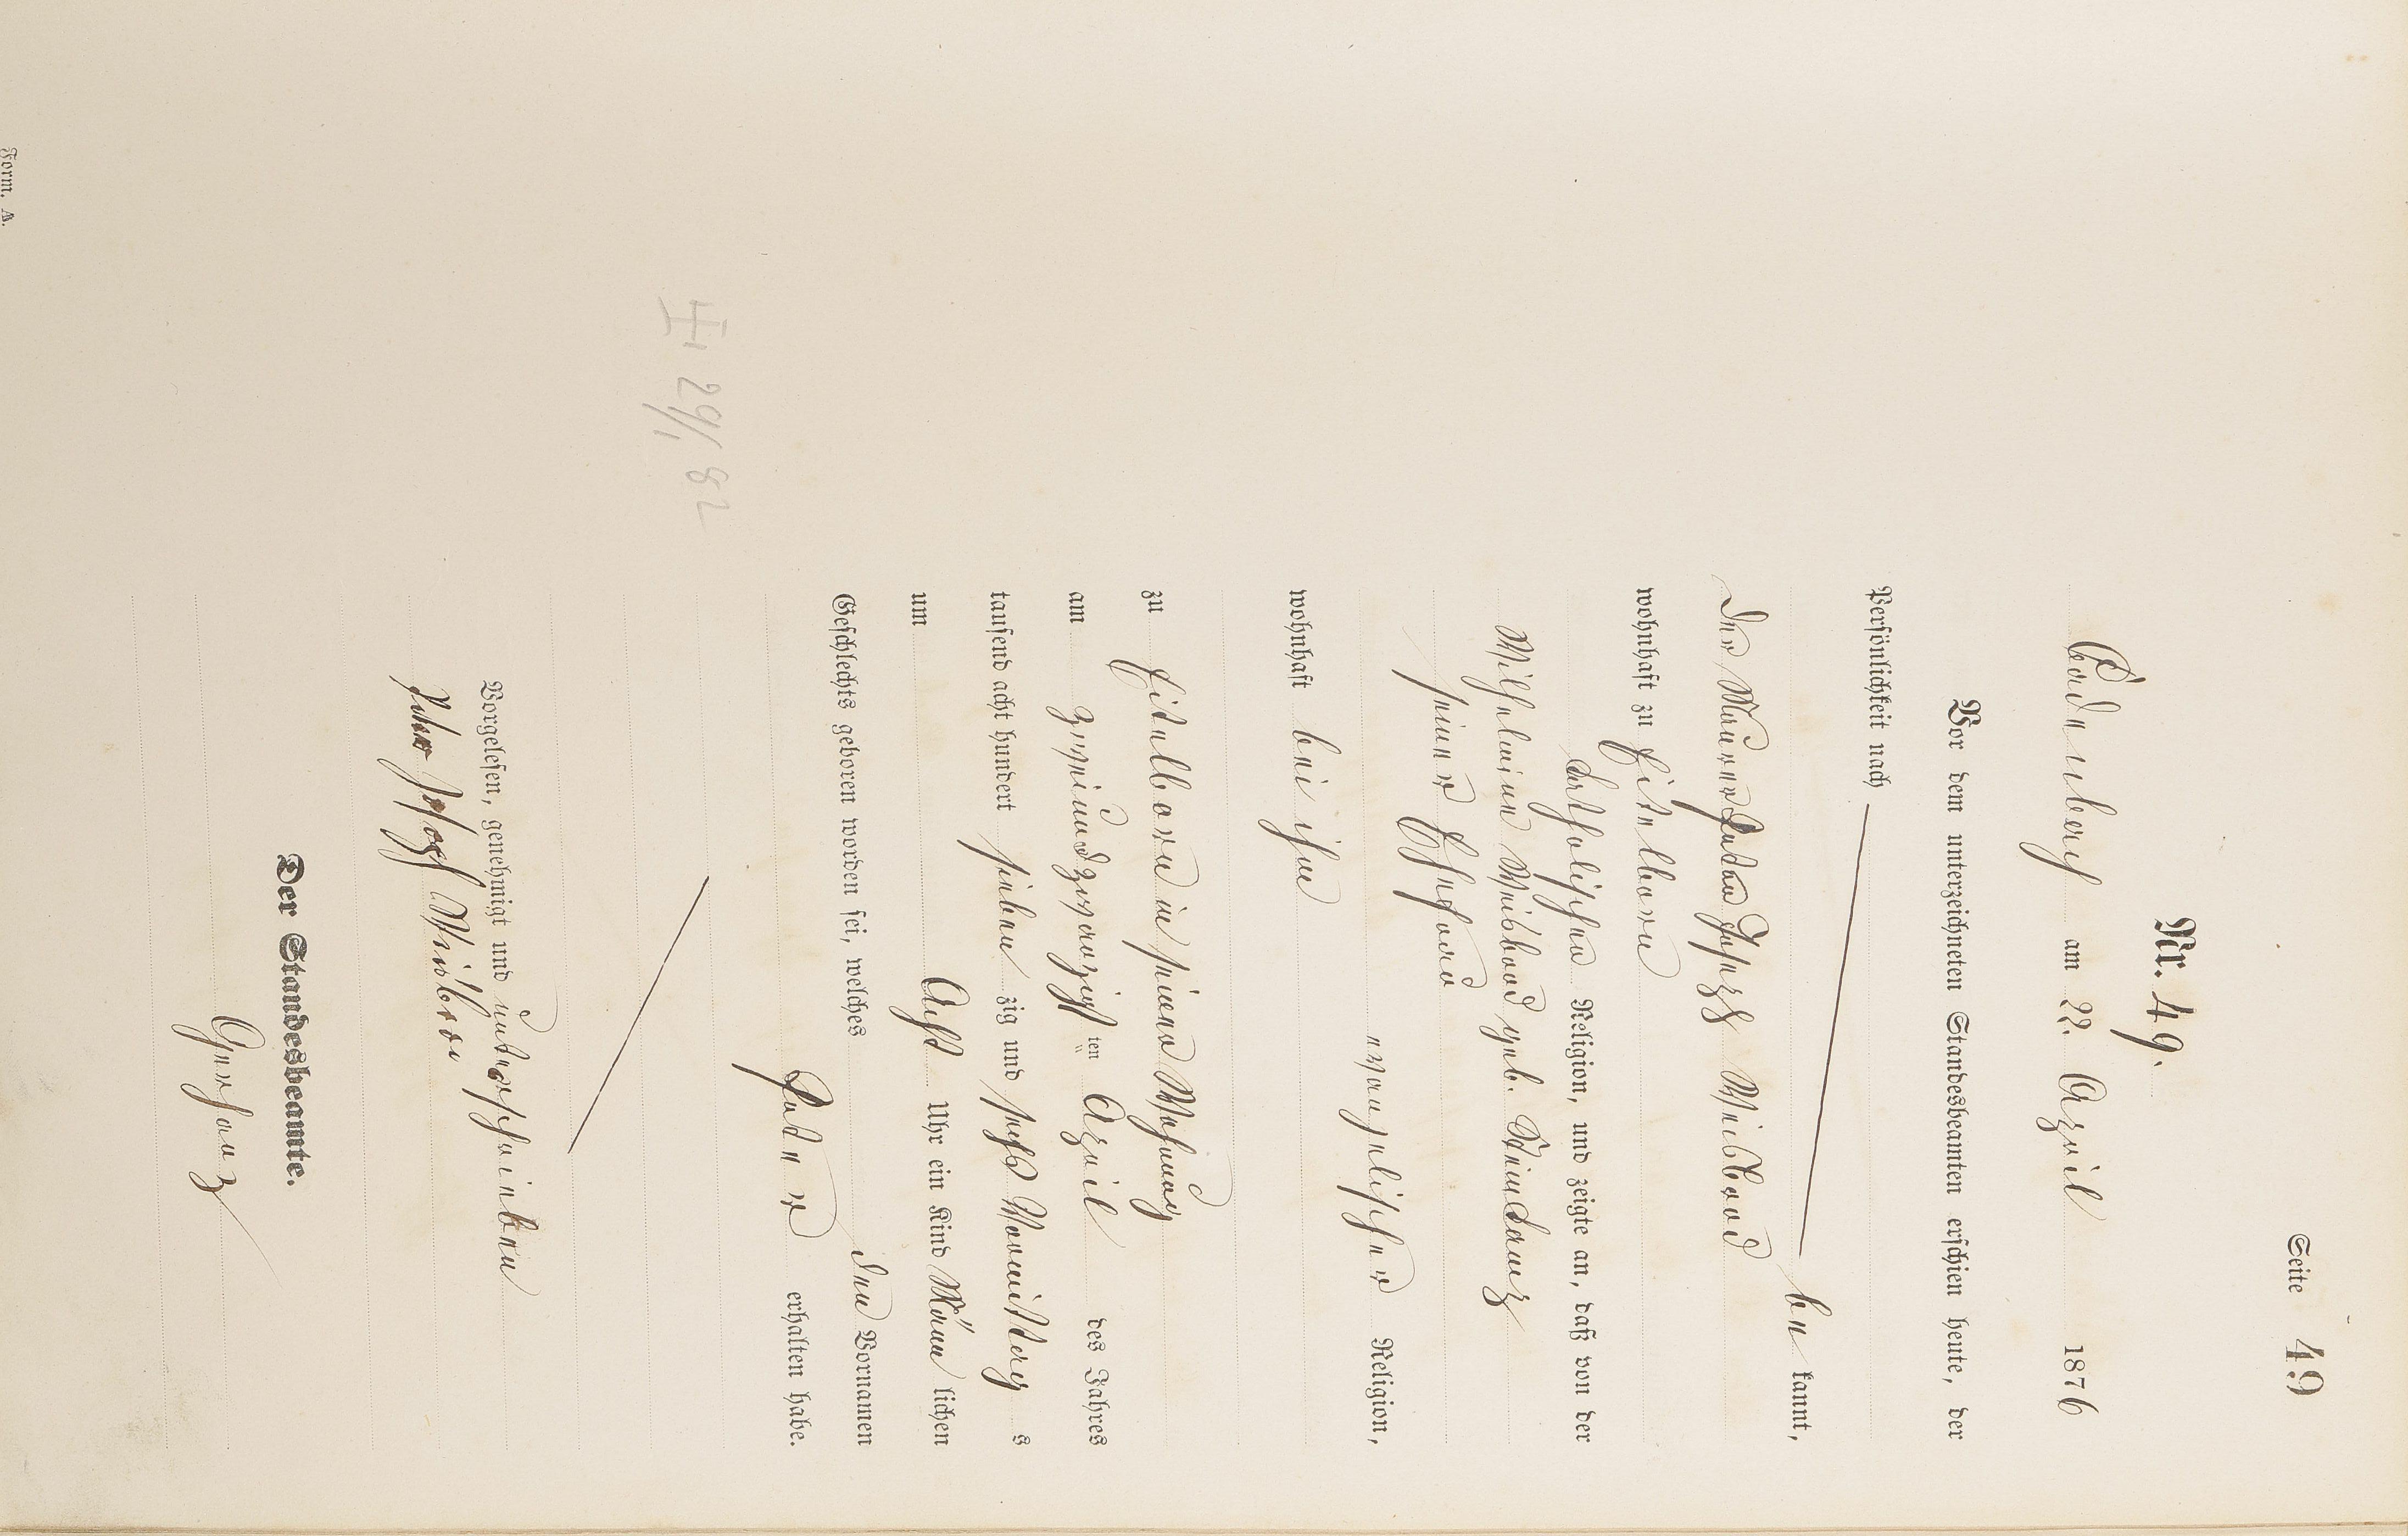 Seite 49
Nr. 49.
Bodenbach am 22. April 1876
Vor dem unterzeichneten Standesbeamten erschien heute, der
Persönlichkeit nach
be kannt,
der Maurer Peter Joseph Weisbrod
wohnhaft zu Eitelborn
katholischer Religion, und zeigte an, daß von der
Wilhelmine Weisbrod geb.
seiner Ehefrau
evangelischer Religion,
wohnhaft bei ihm
zu Eitelborn in seiner Wohnung
am zweiundzwanzigsten ten April des Jahres
tausend acht hundert sieben zig und sechs Vormittag s
um Acht Uhr ein Kind Männ lichen
Geschlechts geboren worden sei, welches den Vornamen
Peter erhalten habe.
Ŧ 29/1 82
Vorgelesen, genehmigt und unterschrieben
Peter Joseph Weisbrod
Der Standesbeamte.
Form. A.